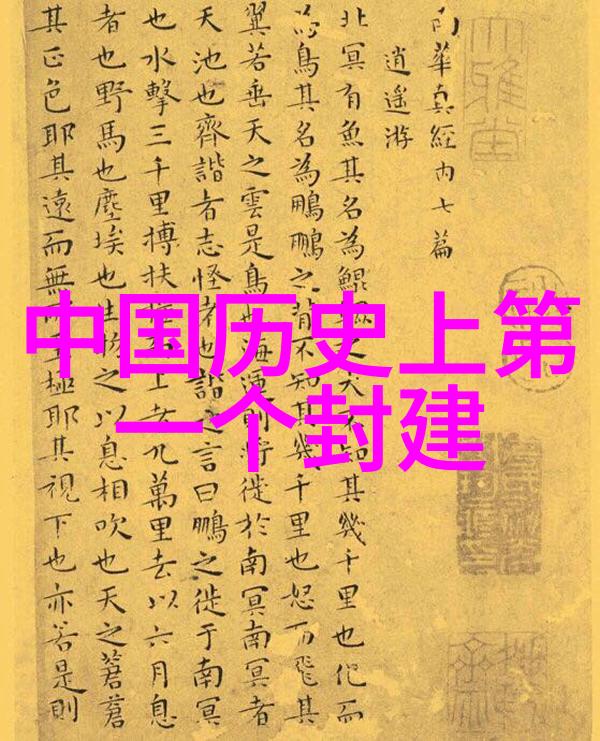 中国历史上第
一个封建
南華真經内七篇
逍遥游
北冥有魚其名為鯤鯤之大不知其幾千里也化而
為鳥其名為鵬鵬之背不知其幾千里也怒而飛其
翼若垂天之雲是鳥也海運則將徙於南冥南冥者
天池也齊諧者志怪者也諧之言曰鵬之徙于南冥
也水擊三千里摶扶摇而上者九萬里去以六月息
者也野馬也塵埃也生物之以息相吹也天之蒼蒼
其正色耶其遠而無所至極耶其視下也亦若是則
大雅堂